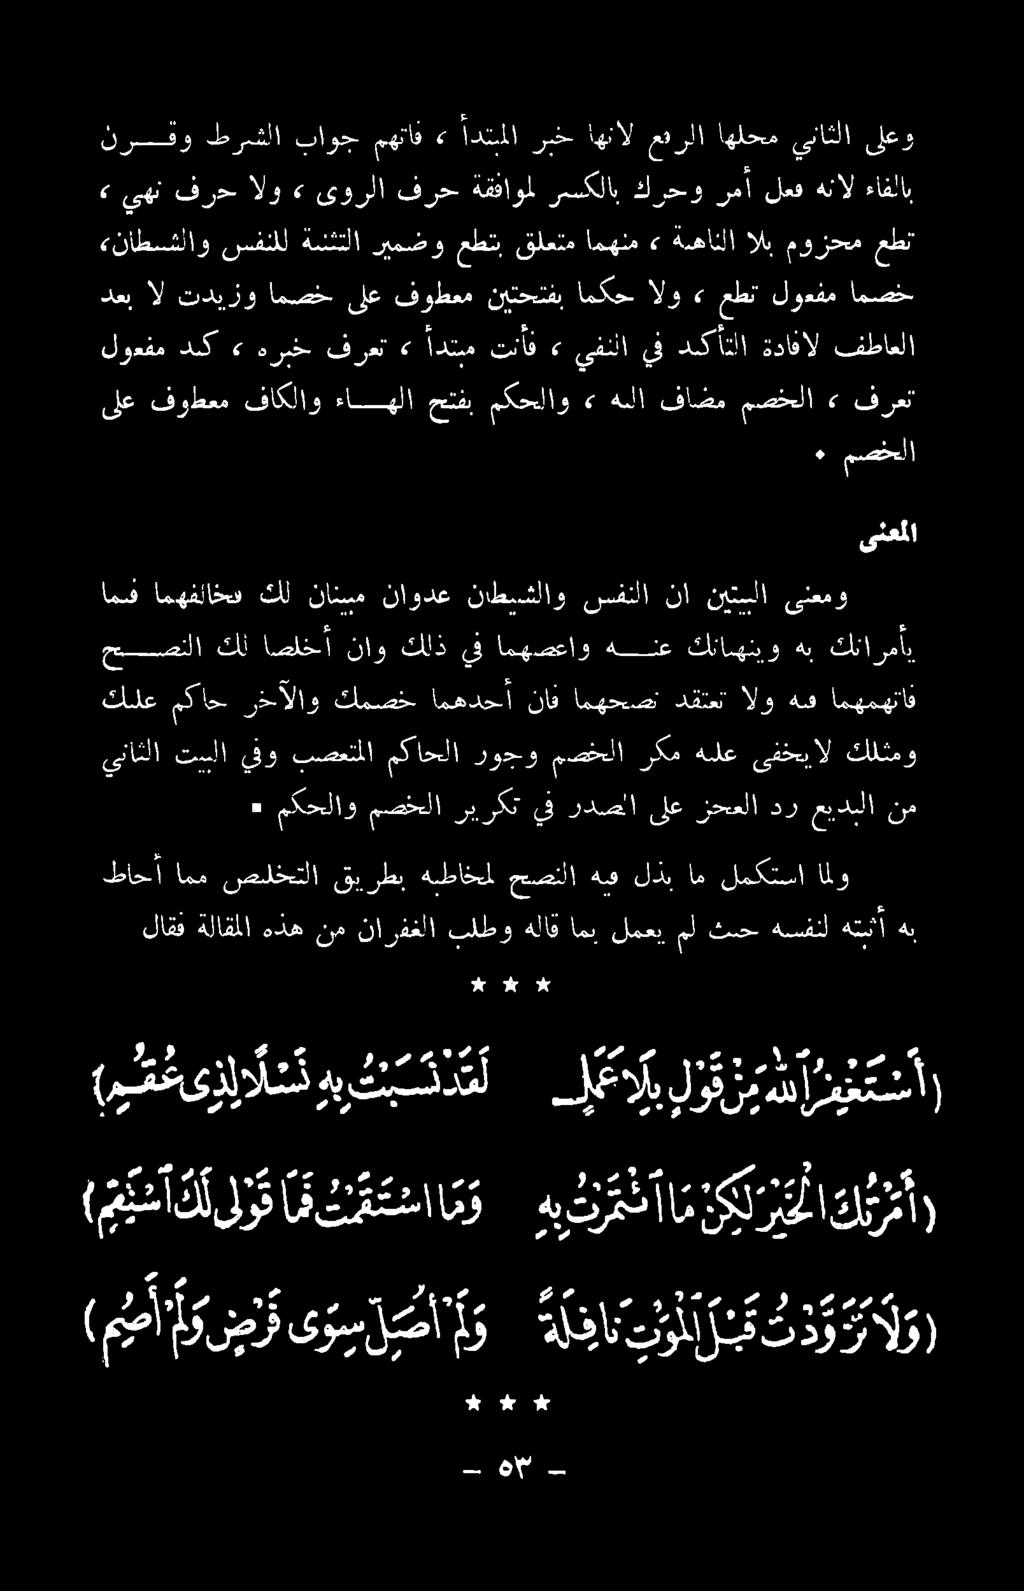 وعلى الثاني محلها الرفع لانها خبر المبتدأ ، فاتهم جواب الشرط وقـــرن
بالفاء لانه فعل أمر وحرك بالكسر لموافقة حرف الروى ، ولا حرف نهي ،
تطع مجزوم بلا الناهية ، منهما متعلق بتطع وضمير التثنية للنفس والشيطان،
خصما مفعول تطع ، ولا حكما بفتحتين معطوف على خصما وزيدت لا بعد
العاطف لافادة التأكيد في النفي ، فأنت مبتدأ ، تعرف خبره ، كيد مفعول
تعرف ، الخصم مضاف اليه ، والحكم بفتح الهـــاء والكاف معطوف على
الخصم •
المعنى
ومعنى البيتين ان النفس والشيطان عدوان مبينان لك فخالفهما فيما
يأمرانك به وينهيانك عنـــه واعصهما في ذلك وان أخلصا لك النصـــح
فاتهمهما فيه ولا تعتقد نصحهما فان أحدهما خصمك والآخر حاكم عليك
ومثلك لا يخفى عليه مكر الخصم وجور الحاكم المتعصب وفي البيت الثاني
من البديع رد العجز على الصدر في تكرير الخصم والحكم ▪
ولما استكمل ما بذل فيه النصح لمخاطبه بطريق التخليص مما أحاط
به أثبته لنفسه حيث لم يعمل بما قاله وطلب الغفران من هذه المقالة فقال
★ ★ ★
(أَسْتَغْفِرُ اللهَ مِنْ قَوْلٍ بِلَا عَمَلٍ لَقَدْ نَسَبْتُ بِهِ نَسْلًا لِذِي عُقُمِ)
(أَمَرْتُكَ الْخَيْرَ لٰكِنْ مَا ائْتَمَرْتُ بِهِ وَمَا اسْتَقَمْتُ فَمَا قَوْلِي لَكَ اسْتَقِمِ)
(وَلَا تَزَوَّدْتُ قَبْلَ الْمَوْتِ نَافِلَةً وَلَمْ أُصَلِّ سِوَى فَرْضٍ وَلَمْ أَصُمِ)
★ ★ ★
– ٥٣ –